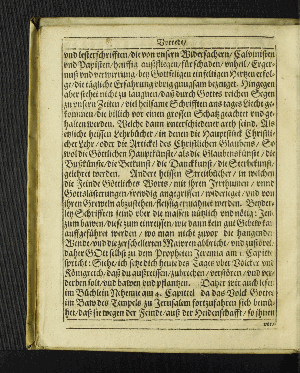 Vorrede/
und lesterschrifften/die von unsern Widersachern/Calvinisten
und Papisten/häuffig außfliegen/für schaden/unheil/Erger-
nuß und verwirrung/bey Gottseligen einfeltigen Hertzen erfol-
ge/die tägliche Erfahrung übrig gnugsam bezeuget. Hingegen
aber stehet nicht zu läugnen/daß durch Gottes reichen Segen
zu unsern Zeiten/viel heilsame Schrifften ans tages Liecht ge-
kommen/die billich vor einen grossen Schatz geachtet und ge-
halten werden. Welche dann unterschiedener arth seind. Als
etliche heissen Lehrbücher/in denen die Hauptstück Christli-
cher Lehr/oder die Artickel des Christlichen Glaubens/So
wol die Göttlichen Hauptkünste/als die Glaubenskunst/die
Bußkunst/die Betkunst/die Danckkunst/die Sterbekunst/
gelehret werden. Andere heissen Streitbücher/in welchen
die Feinde Göttliches Worts/mit ihren Irrthumen/und
Gottslästerungen/ angegriffen/widerleget/und von
ihren Greweln abzustehen/fleissig ermahnet werden. Beyder-
ley Schrifften seind uber die massen nützlich und nötig: Jene
zum bawen/diese zum einreissen/wie dann kein gut Gebew kan
auffgeführet werden/wo man nicht zuvor die hangenden
Wende/und die zerschelleten Mawren abbricht/und zustöret.
Daher GOtt selbst zu dem Propheten Jeremia am 1. Capitel
spricht: Siehe/ich setze dich heute des Tages uber Völcker und
Königreich/daß du außreissen/zubrechen/verstören/und ver-
derben solt/und bawen und pflantzen. Daher wir auch lesen
im Büchlein Nehemie am 4. Capittel/da das Volck Gottes
im Baw des Tempels zu Jerusalem fortzufahren sich bemü-
het/daß sie wegen der Feinde/auß der Heidenschafft/so ihnen